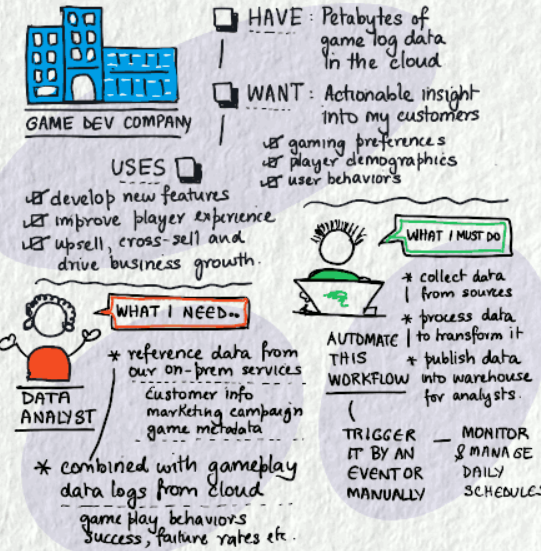 HAVE : Petabytes of
game log data
in the cloud
WANT : Actionable insight
into my customers
gaming preferences
player demographics
user behaviors
GAME DEV COMPANY
USES
develop new features
improve player experience
upsell, cross-sell and
drive business growth.
WHAT I NEED..
* reference data from
our on-prem services
Customer info
marketing campaign
game metadata
DATA
ANALYST
* combined with gameplay
data logs from cloud
game play behaviors
success, failure rates etc.
WHAT I MUST DO
* collect data
from sources
* process data
to transform it
* publish data
into warehouse
for analysts.
AUTOMATE
THIS
WORKFLOW
TRIGGER
IT BY AN
EVENT OR
MANUALLY
MONITOR
& MANAGE
DAILY
SCHEDULES